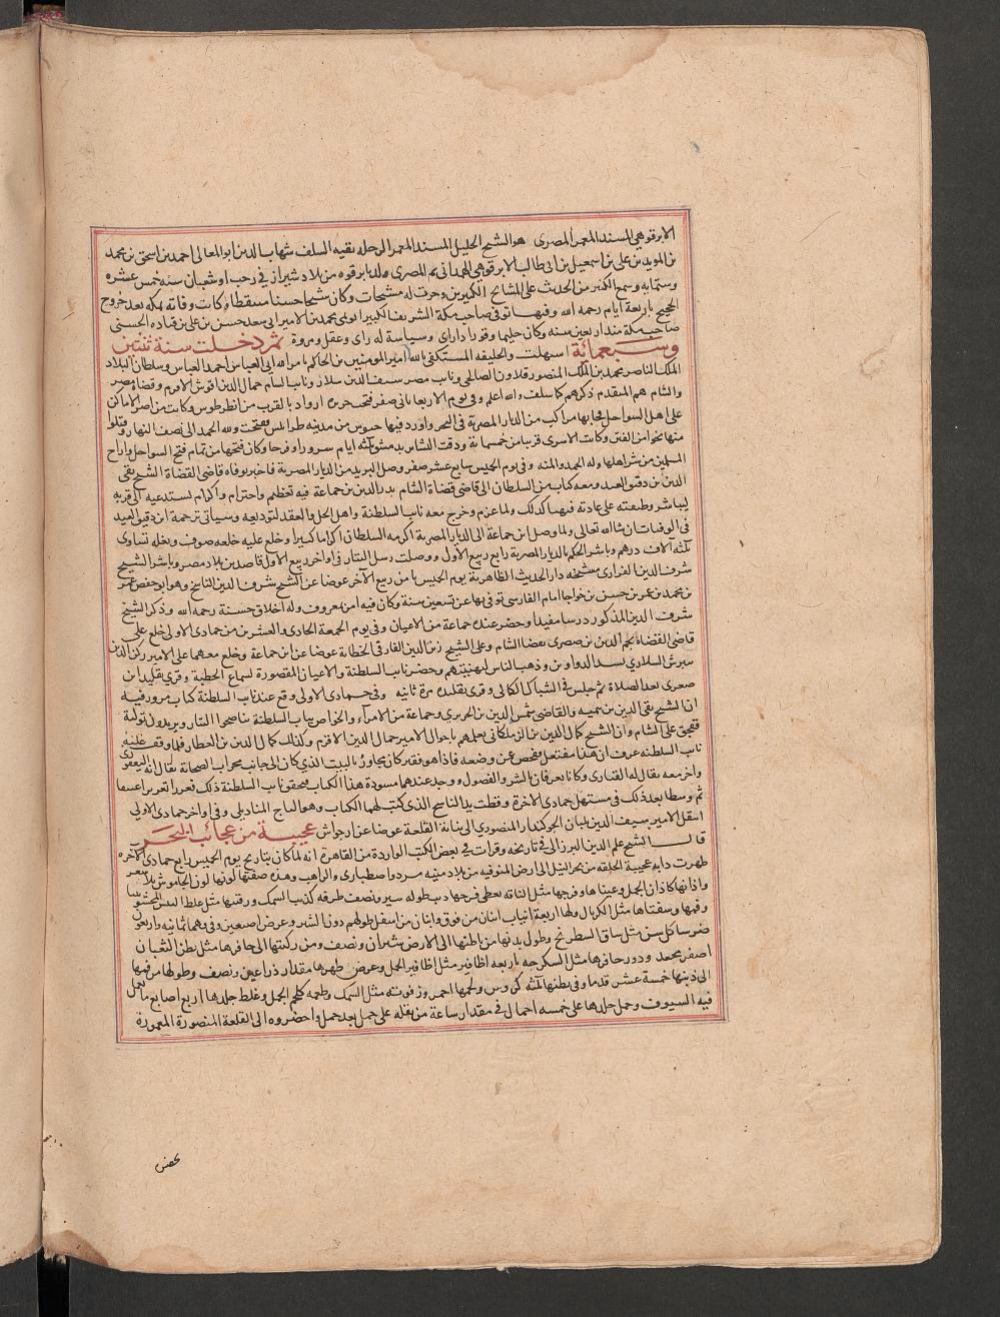 الابرقوهي المسند المعمر المصري هو الشيخ الجليل المسند المعمر الرحله بقيه السلف شهاب الدين ابو المعالي احمد بن اسحق بن محمد
بن المويد بن علي بن اسمعيل بن ابي طالب الابرقوهي الهمداني ثم المصري ولد بابرقوه من بلاد شيراز في رجب او شعبان سنه خمس عشره
وستمايه وسمع الكثير من الحديث على المشايخ الكثيرين وخرجت له مشيخات وكان شيخا حسنا متقطا وكانت وفاته بمكه بعد خروج
الحجيج باربعة ايام رحمه الله وفيها توفي صاحب مكة الشريف الكبير ابو نمي محمد بن الامير ابي سعد حسن بن علي بن قتاده الحسني
صاحب مكة منذ اربعين سنه وكان حليما وقورا داراي وسياسة له راي وعقل ومروة ثم دخلت سنة ثنتين
وسبعمائة استهلت والخليفه المستكفي بالله امير المومنين بن الحاكم بامر الله ابي العباس احمد العباسي وسلطان البلاد
الملك الناصر محمد بن الملك المنصور قلاون الصالحي ونايب مصر سيف الدين سلار ونايب الشام جمال الدين اقوش الافرم وقضاة مصر
والشام هم المتقدم ذكرهم كما سلف والله اعلم وفي يوم الاربعا ثاني صفر فتحت جزيرة ارواد بالقرب من انطرطوس وكانت من اضر الاماكن
على اهل السواحل فجاتها مراكب من الديار المصرية في البحر واردفها جيوش من مدينه طرابلس ففتحت ولله الحمد الى نصف النهار وقتلوا
منها نحوا من الفين وكانت الاسرى قريبا من خمسمائة ودقت البشاير بدمشق ثلثه ايام سرورا وفرحا وكان فتحها من تمام فتح السواحل واراح
المسلمين من شر اهلها وله الحمد والمنه وفي يوم الخميس سابع عشر صفر وصل البريد من الديار المصرية فاخبر بوفاه قاضي القضاة الشيخ تقي
الدين بن دقيق العيد ومعه كتاب من السلطان الى قاضي قضاة الشام بدر الدين بن جماعة فيه تعظيم واحترام واكرام يستدعيه الى قربه
ليباشر وظيفته على عادته فتهيا كذلك ولما عزم وخرج معه نايب السلطنة واهل الحل والعقد لتوديعه وسياتي ترجمة ابن دقيق العيد
في الوفيات ان شا الله تعالى ولما وصل ابن جماعة الى الديار المصرية اكرمه السلطان اكراما كثيرا وخلع عليه خلعه صوف وبغله تساوى
ثلثه الاف درهم وباشر الحكم بالديار المصرية رابع ربيع الاول ووصلت رسل التتار في اواخر ربيع الاول قاصدين بلاد مصر وباشر الشيخ
شرف الدين الفزاري مشيخه دار الحديث الظاهرية يوم الخميس ثامن ربيع الآخر عوضا عن الشيخ شرف الدين الناسخ وهو ابو حفص عمر
بن محمد بن عمر بن حسن بن خواجا امام الفارسي توفي بها عن تسعين سنة وكان فيه بر ومعروف وله اخلاق حسنة رحمه الله وذكر الشيخ
شرف الدين المذكور درسا مفيدا وحضر عنده جماعة من الاعيان وفي يوم الجمعة الحادي والعشرين من جمادى الاولى خلع على
قاضي القضاه نجم الدين بن صصرى بقضا الشام وعلى الشيخ زين الدين الفارقي بالخطابه عوضا عن ابن جماعة وخلع معهما على الامير ركن الدين
بيبرس السلاري بشد الدواوين وذهب الناس لتهنيتهم وحضر نايب السلطنة والاعيان المقصورة لسماع الخطبة وقري تقليد ابن
صصرى بعد الصلاة ثم جلس في الشباك الكمالي وقري تقليده مرة ثانيه وفي جمادى الاولى وقع عند نايب السلطنة كتاب مزور فيه
ان الشيخ تقي الدين بن تيميه والقاضي شمس الدين بن الحريري وجماعة من الامراء والخواص بباب السلطنة يناصحوا التتار ويريدون تولية
قفجق على الشام وان الشيخ كمال الدين بن الزملكاني يعلمهم باحوال الامير جمال الدين الافرم وكذلك كمال الدين بن العطار فلما وقف عليه
نايب السلطنه عرف ان هذا مفتعل ففحص عن وضعه فاذا هو فقير كان مجاورا بالبيت الذي كان الى جانب محراب الصحابة يقال له اليعفوري
واخر معه يقال له الفناري وكانا يعرفان بالشر والفضول ووجد عندهما مسودة هذا الكتاب فتحقق نايب السلطنة ذلك فعزرا تعزيرا عنيفا
ثم وسطا بعد ذلك في مستهل جمادى الاخرة وقطعت يد الناسخ الذي كتب لهما الكتاب وهو التاج المناديلي وفي اواخر جمادى الاولى
انتقل الامير سيف الدين بلبان الجوكندار المنصوري الى نيابة القلعة عوضا عن ارجواش عجيبة من عجائب البحر
قال الشيخ علم الدين البرزالي في تاريخه وقرات في بعض الكتب الواردة من القاهرة انه لما كان بتاريخ يوم الخميس رابع جمادى الآخره
ظهرت دابه عجيبة الخلقه من بحر النيل الى ارض المنوفيه من بلاد منيه مسرد واصطباري والراهب وهذه صفتها لونها لون الجاموش بلا شعر
واذانها كاذان الجمل وعيناها وفرجها مثل الناقه يغطي فرجها ذنب طوله شبر ونصف طرفه كذنب السمك ورقبتها مثل غلظ التليس المحشو تبنا
وفمها وشفتاها مثل الكربال ولها اربعة انياب اثنان من فوق واثنان من اسفل طولهم دون الشبر وعرض اصبعين وفي فمها ثمانيه واربعون
ضرسا كل سن مثل ساق الشطرنج وطول يدها من باطنها الى الارض شبران ونصف ومن ركبتها الى حافرها مثل بطن الثعبان
اصفر مجعد ودور حافرها مثل السكرجه باربعه اظافير مثل اظافير الجمل وعرض ظهرها مقدار ذراعين ونصف وطولها من فمها
الى ذنبها خمسة عشر قدما وفي بطنها ثلثه كروس ولحمها احمر وزفوته مثل السمك وطعمه كلحم الجمل وغلظ جلدها اربع اصابع ما تعمل
فيه السيوف وحمل جلدها على خمسه احمال في مقدار ساعة من ثقله على جمل بعد جمل واحضروه الى القلعة المنصورة المعمورة